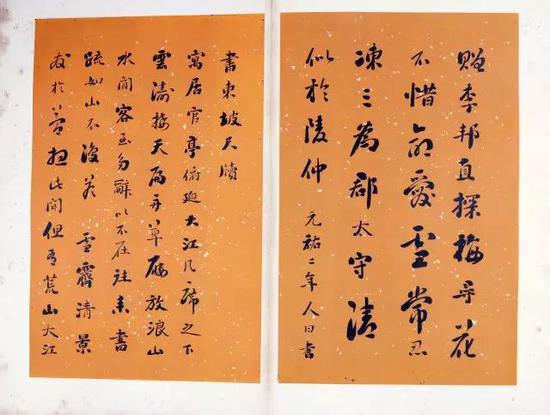 贈李邦直探梅尋花
不惜命愛雪常忍
凍三為郡太守清
似於陵仲 元祐二年人日書
書東坡尺牘
寓居官亭俯迫大江几席之下
雲濤接天扁舟草屨放浪山
水間客至多辭以不在往來書
疏如山不復答 雪霽清景
發於夢想此間但有荒山大江